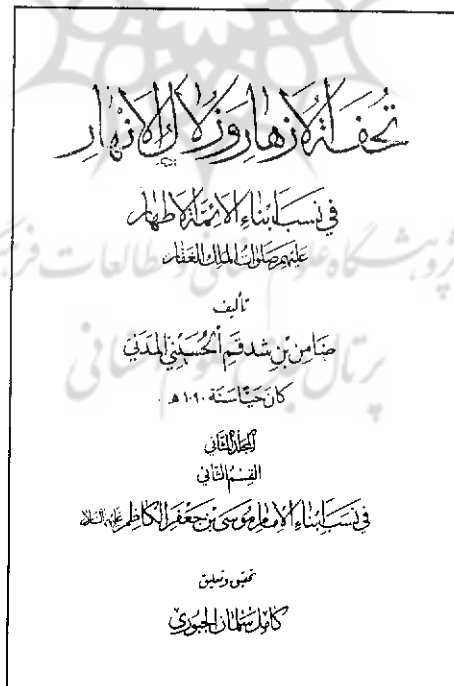 تحفة الأزهار وزلال الأنهار
في نسب أبناء الأئمة الأطهار
عليهم صلوات الملك الغفار
تأليف
ضامن بن شدقم الحسيني المدني
كان حيا سنة ١٠٩٠ هـ
المجلد الثاني
القسم الثاني
في نسب أبناء الإمام موسى بن جعفر الكاظم عليه السلام
تحقيق وتعليق
كامل سلمان الجبوري
پژوهشگاه علوم انسانی و مطالعات فرهنگی
پرتال جامع علوم انسانی